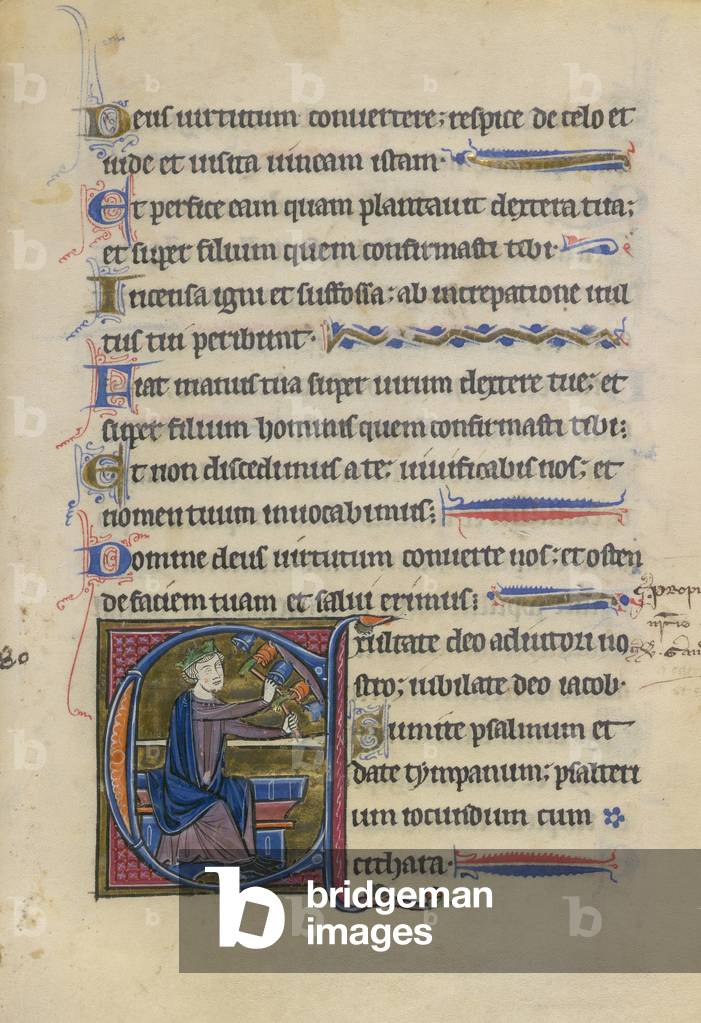 Deus uirtutum conuertere; respice de celo et
uide et uisita uineam istam.
Et perfice eam quam plantauit dextera tua;
et super filium quem confirmasti tibi.
Incensa igni et suffossa; ab increpatione uul
tus tui peribunt.
Fiat manus tua super uirum dextere tue; et
super filium hominis quem confirmasti tibi;
Et non discedimus a te; uiuificabis nos; et
nomen tuum inuocabimus;
Domine deus uirtutum conuerte nos; et osten
de faciem tuam et salui erimus;
Exultate deo adiutori no
stro; iubilate deo iacob.
Sumite psalmum et
date tympanum; psalteri
um iocundum cum
cithara.
80
b bridgeman
images